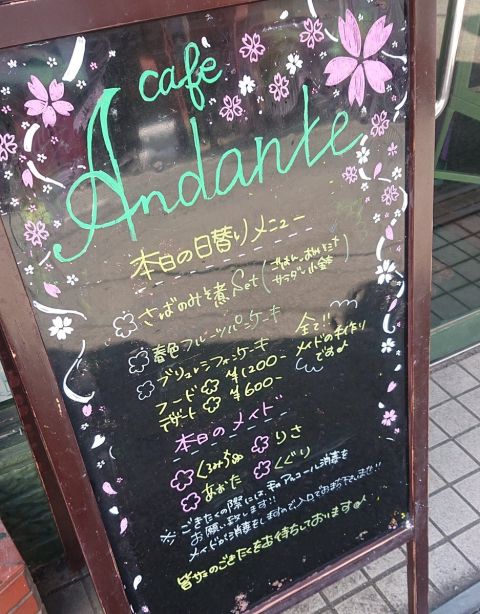 cafe
Andante
本日の日替りメニュー
さばのみそ煮 Set (ごはん、おみそ汁 サラダ、小鉢)
春色フルーツパンケーキ
ブリュレシフォンケーキ
フード ¥1200-
デザート ¥600-
全て!!
メイドの手作り
です♪
本日のメイド
くるみちゅ りさ
あおた くぐり
※ ごきたくの際には、手のアルコール消毒を
お願い致します!!
メイドが消毒をしますので入口でお待ち下さいませ!!
皆サマのごきたくをお待ちしております♪